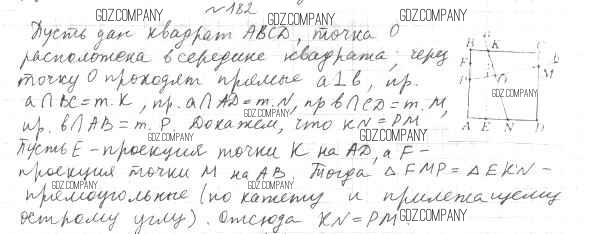 № 182
GDZ.COMPANY
Пусть дан квадрат ABCD, точка O
расположена в середине квадрата; через
точку O проходят прямые a⊥b, пр.
a∩BC = т. K, пр. a∩AD = т. N, пр b∩CD = т. M,
пр. b∩AB = т. P. Докажем, что KN = PM.
Пусть E - проекция точки K на AD, а F -
проекция точки M на AB. Тогда △FMP = △EKN -
прямоугольные (по катету и прилежащему
острому углу). Отсюда KN = PM.
B K C
F M
P
A E N D
GDZ.COMPANY
GDZ.COMPANY
GDZ.COMPANY
GDZ.COMPANY
GDZ.COMPANY
GDZ.COMPANY
GDZ.COMPANY
GDZ.COMPANY
GDZ.COMPANY
GDZ.COMPANY
GDZ.COMPANY
GDZ.COMPANY